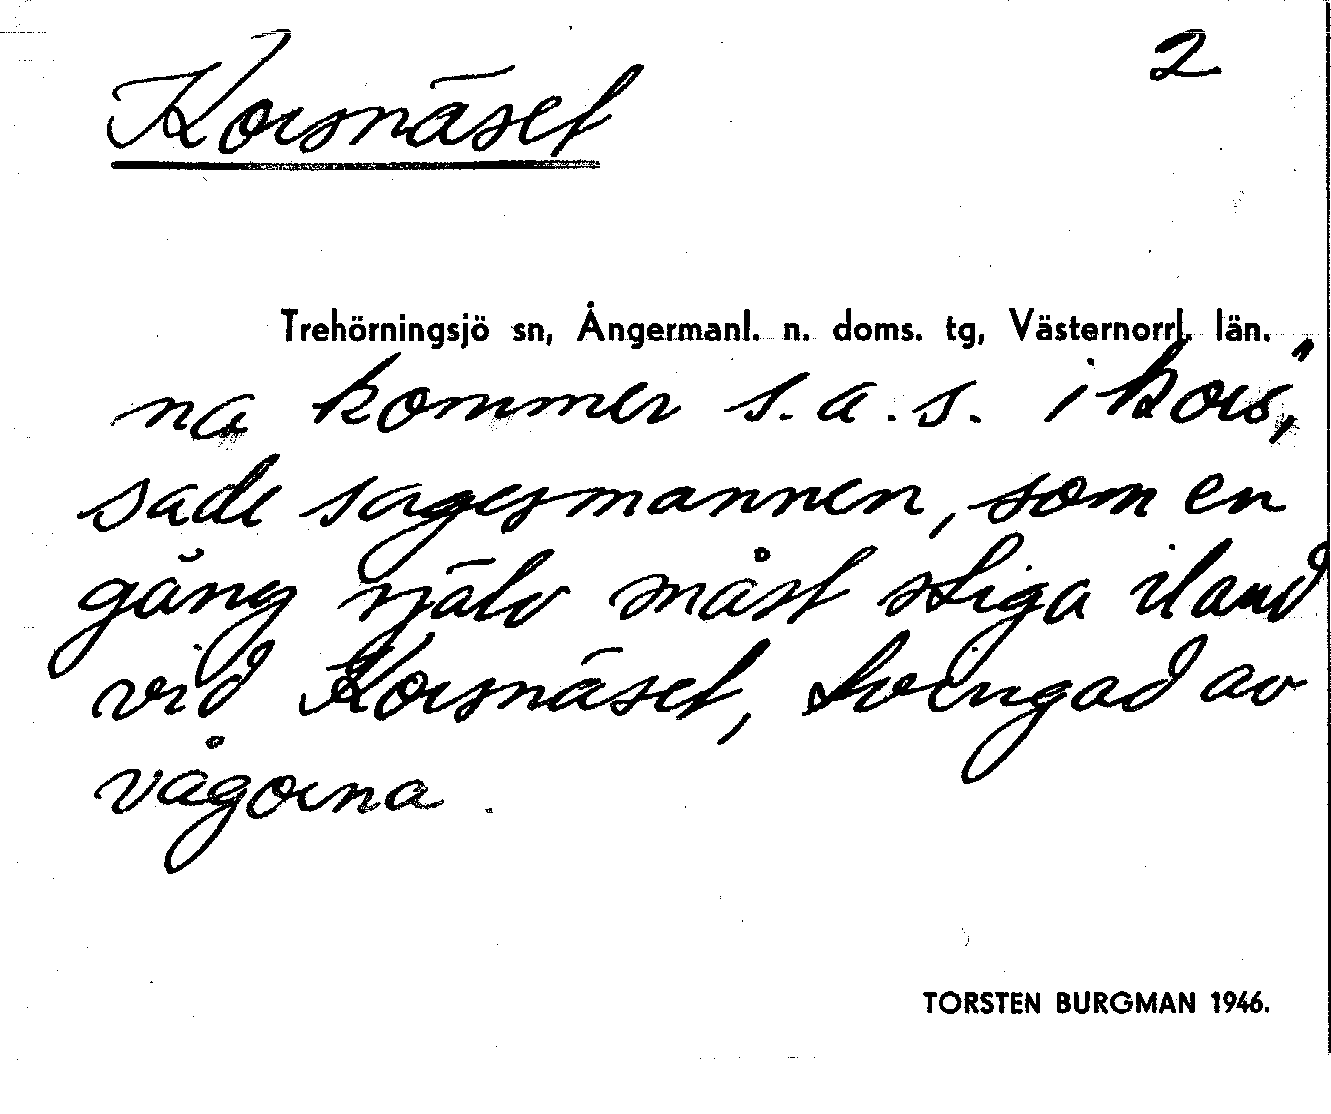 Korsnäset
2
Trehörningsjö sn, Ångermanl. n. doms. tg, Västernorrl. län.
na kommer s.a.s. i kors,"
sade sagesmannen, som en
gång själv måst stiga iland
vid Korsnäset, tvingad av
vågorna.
TORSTEN BURGMAN 1946.